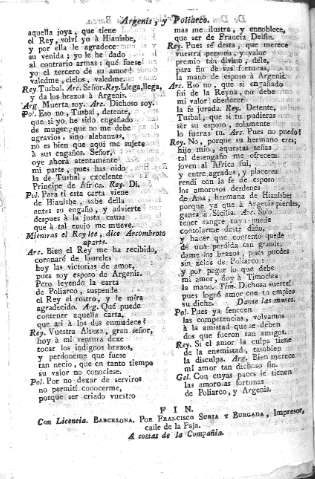 Argenis, y Poliarco.
aquella joya, que tiene
el Rey, volvi yo à Hianisbe,
y por ella le agradece
su venida; yo le he dado
si contrario armas: què fuese
yo el tercero de su amor!
valedme, cielos, valedme.
Rey. Turbal. Arc. Señor. Rey. Llega, llega,
y dà los brazos à Argenis.
Arg. Muerta soy. Arc. Dichoso soy.
Pol. Eso no, Turbal, detente,
que si yo he sido engañado
de muger, que no me debe
agravios, sino alabanzas,
no es bien que aqui me sujete
à sus engaños. Señor,
oye ahora atentamente
mi parte, pues has oido
la de Turbal, excelente
Principe de Africa. Rey. Di.
Pol. Para ti esta carta viene
de Hianisbe, sabe della
antes su engaño, y advierte
despues à la justa causa
que à tal enojo me mueve.
Mientras el Rey lee, dice Arcombroto
aparte.
Arc. Bien el Rey me ha recibido,
coronarè de laureles
hoy las victorias de amor,
pues soy esposo de Argenis.
Pero leyendo la carta
de Poliarco, suspende
el Rey el rostro, y le mira
agradecido. Arg. Què puede
contener aquella carta,
que asi à los dos enmudece?
Rey. Vuestra Alteza, gran señor,
hoy à mi ventura dexe
tocar los indignos brazos,
y perdoneme que fuese
tan necio, que en tanto tiempo
su valor no conociese.
Pol. Por no dexar de serviros
no permití conocerme,
porque ser criado vuestro
mas me ilustra, y ennoblece,
que ser de Francia Delfin.
Rey. Pues sè desta, que merece
vuestra persona, y valor
premio tan divino, dèle,
para fin de sus firmezas,
la mano de esposo à Argenis.
Arc. Eso no, que si engañado
fui de la Reyna, no debe
mi valor obedecer
la fe jurada. Rey. Detente,
Turbal, que si tu pudieras
ser su esposo, solamente
lo fueras tu. Arc. Pues no puedo?
Rey. No, porque su hermano eres;
hijo mio, aquestas señas
tal desengaño me ofrecen;
joven al Africa fui,
y entre agrados, y placeres
rendì con la fe de esposo
los amorosos verdores
de Ana, hermana de Hianisbe;
porque ya que à Argenis pierdes,
ganes à Sicilia. Arc. Solo
tener sangre tuya puede
consolarme deste daño,
y hacer que contento quede
de una perdida tan grande;
dame los brazos, pues puedes
sin zelos de Poliarco:
y por pagar lo que debe
mi amor, doy à Timoclea
la mano. Tim. Dichosa suerte!
pues logrò amor con tu empleo
su dicha. Danse las manos.
Pol. Pues ya fenecen
las competencias, volvamos
à la amistad que se deben
dos que fueron tan amigos.
Rey. Si el amor la culpa tiene
de la enemistad, tambien
la disculpa. Arg. Bien merece
mi amor tan dichoso fin.
Gel. Con cuyas paces se tienen
las amorosas fortunas
de Poliarco, y Argenis.
FIN.
Con Licencia. BARCELONA. POR FRANCISCO SURIA Y BURGADA, Impresor,
calle de la Paja.
A costas de la Compañia.